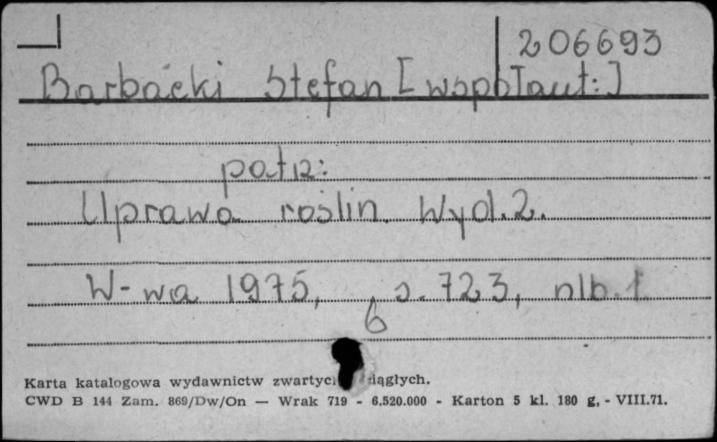 206693
Barbacki Stefan [współaut:]
patrz:
Uprawa roślin. Wyd. 2.
W-wa 1975, s. 723, nlb. 1
6
Karta katalogowa wydawnictw ciągłych.
CWD B 144 Zam. 869/Dw/On — Wrak 719 - 6.520.000 - Karton 5 kl. 180 g. - VIII.71.